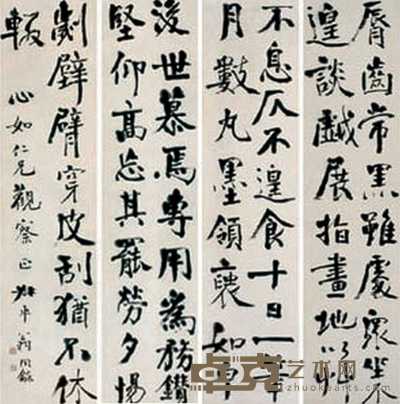 脣齒常黑雖處眾坐不
遑談戲展指畫地以草
不息仄不遑食十日一筆
月數丸墨領褏如皁
後世慕焉專用為務鑽
堅仰高忘其罷勞夕惕
劌壁臂穿皮刮猶不休
輟
心如仁兄觀察正 叔平翁同龢
卓克艺术网